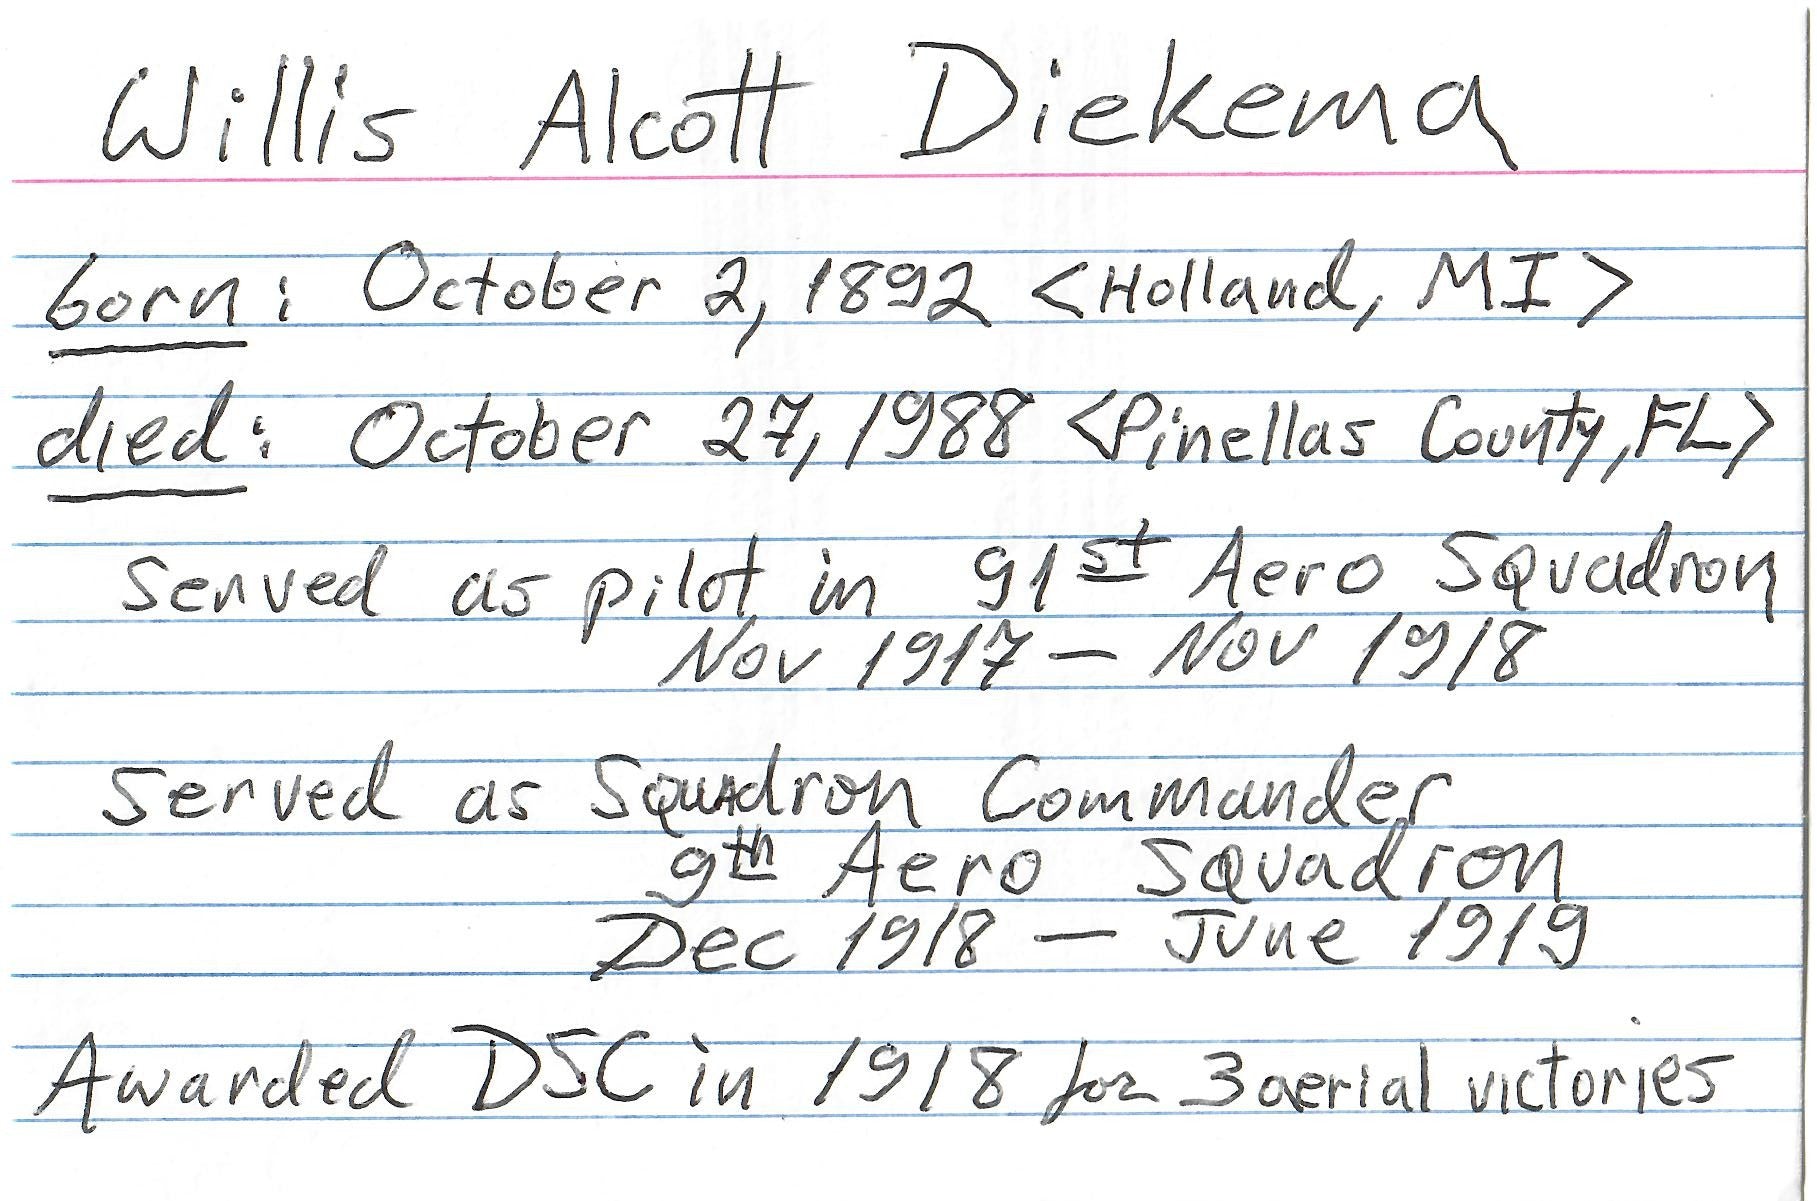 Willis Alcott Diekema
born: October 2, 1892 <Holland, MI>
died: October 27, 1988 <Pinellas County, FL>
Served as pilot in 91st Aero Squadron
Nov 1917 — Nov 1918
Served as Squadron Commander
9th Aero Squadron
Dec 1918 — June 1919
Awarded DSC in 1918 for 3 aerial victories